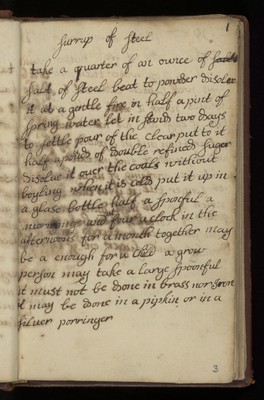 1
surrup of steel
take a quarter of an ounce of salt
salt of steel beat to powder disolve
it at a gentle fire in half a pint of
spring water let in stand two days
to settle pour of the clear put to it
half a pound of double refined suger
disolve it over the coals without
boyling when it is cold put it up in
a glase bottle half a spoonful a
morning and four a clock in the
afternoons for a month together may
be a enough for a child a grow
person may take a large spoonful
it must not be done in brass nor Iron
it may be done in a pipkin or in a
silver porringer
3